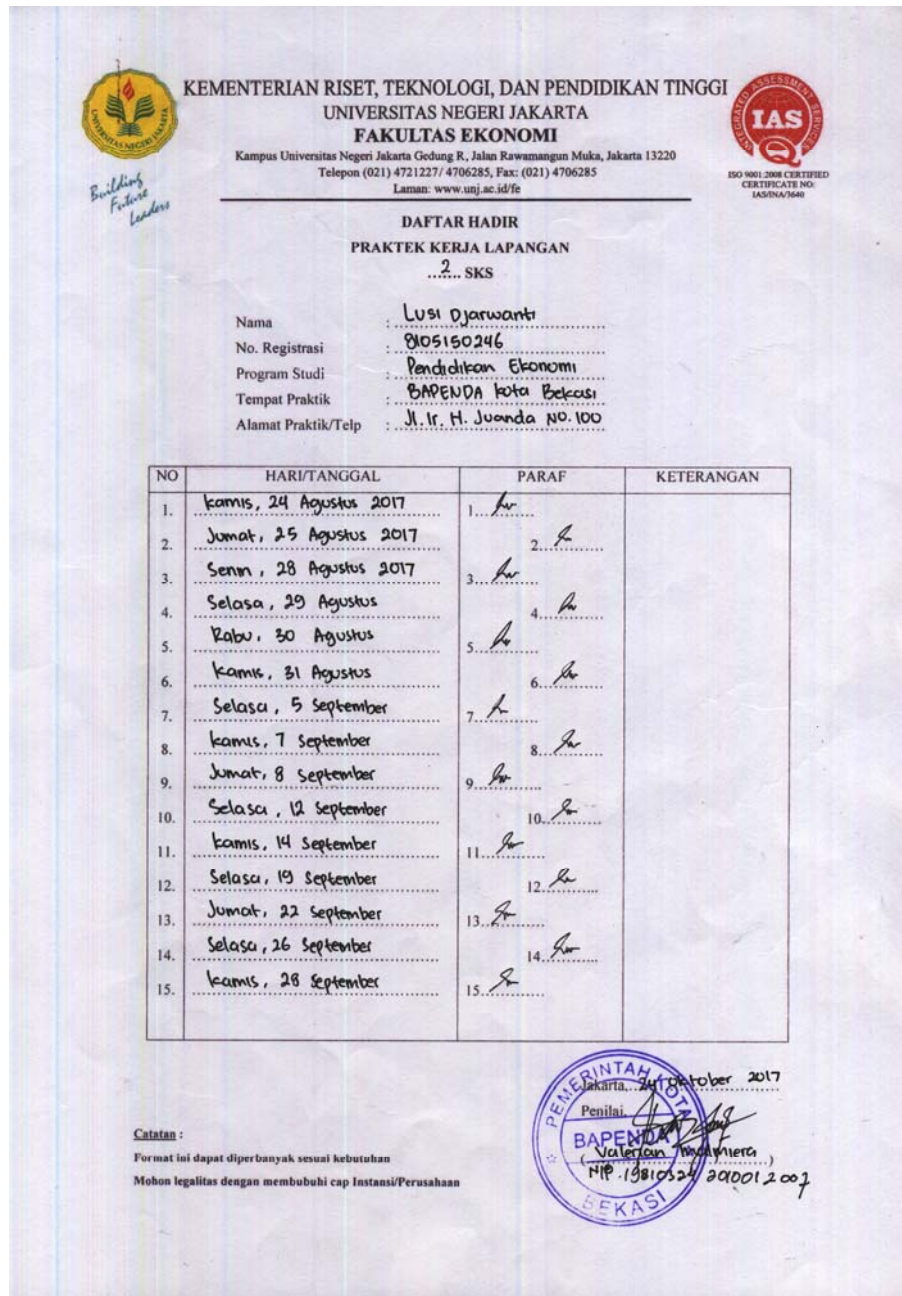 KEMENTERIAN RISET, TEKNOLOGI, DAN PENDIDIKAN TINGGI
UNIVERSITAS NEGERI JAKARTA
FAKULTAS EKONOMI
Kampus Universitas Negeri Jakarta Gedung R, Jalan Rawamangun Muka, Jakarta 13220
Telepon (021) 4721227/ 4706285, Fax: (021) 4706285
Laman: www.unj.ac.id/fe
UNIVERSITAS NEGERI JAKARTA
Building
Future
Leaders
INTEGRATED ASSESSMENT SERVICES
IAS
ISO 9001:2008 CERTIFIED
CERTIFICATE NO:
IAS/INA/3640
DAFTAR HADIR
PRAKTEK KERJA LAPANGAN
...2... SKS
Nama : Lusi Djarwanti
No. Registrasi : 8105150246
Program Studi : Pendidikan Ekonomi
Tempat Praktik : BAPENDA kota Bekasi
Alamat Praktik/Telp : Jl. Ir. H. Juanda NO. 100
NO HARI/TANGGAL PARAF KETERANGAN
1. kamis, 24 Agustus 2017 1
2. Jumat, 25 Agustus 2017 2
3. Senin, 28 Agustus 2017 3
4. Selasa, 29 Agustus 4
5. Rabu, 30 Agustus 5
6. kamis, 31 Agustus 6
7. Selasa, 5 September 7
8. kamis, 7 September 8
9. Jumat, 8 September 9
10. Selasa, 12 September 10
11. kamis, 14 September 11
12. Selasa, 19 September 12
13. Jumat, 22 September 13
14. Selasa, 26 September 14
15. kamis, 28 September 15
Jakarta, 24 Oktober 2017
Penilai,
PEMERINTAH KOTA
BAPENDA
BEKASI
( Valerian )
NIP. 19810524 201001 2 007
Catatan :
Format ini dapat diperbanyak sesuai kebutuhan
Mohon legalitas dengan membubuhi cap Instansi/Perusahaan